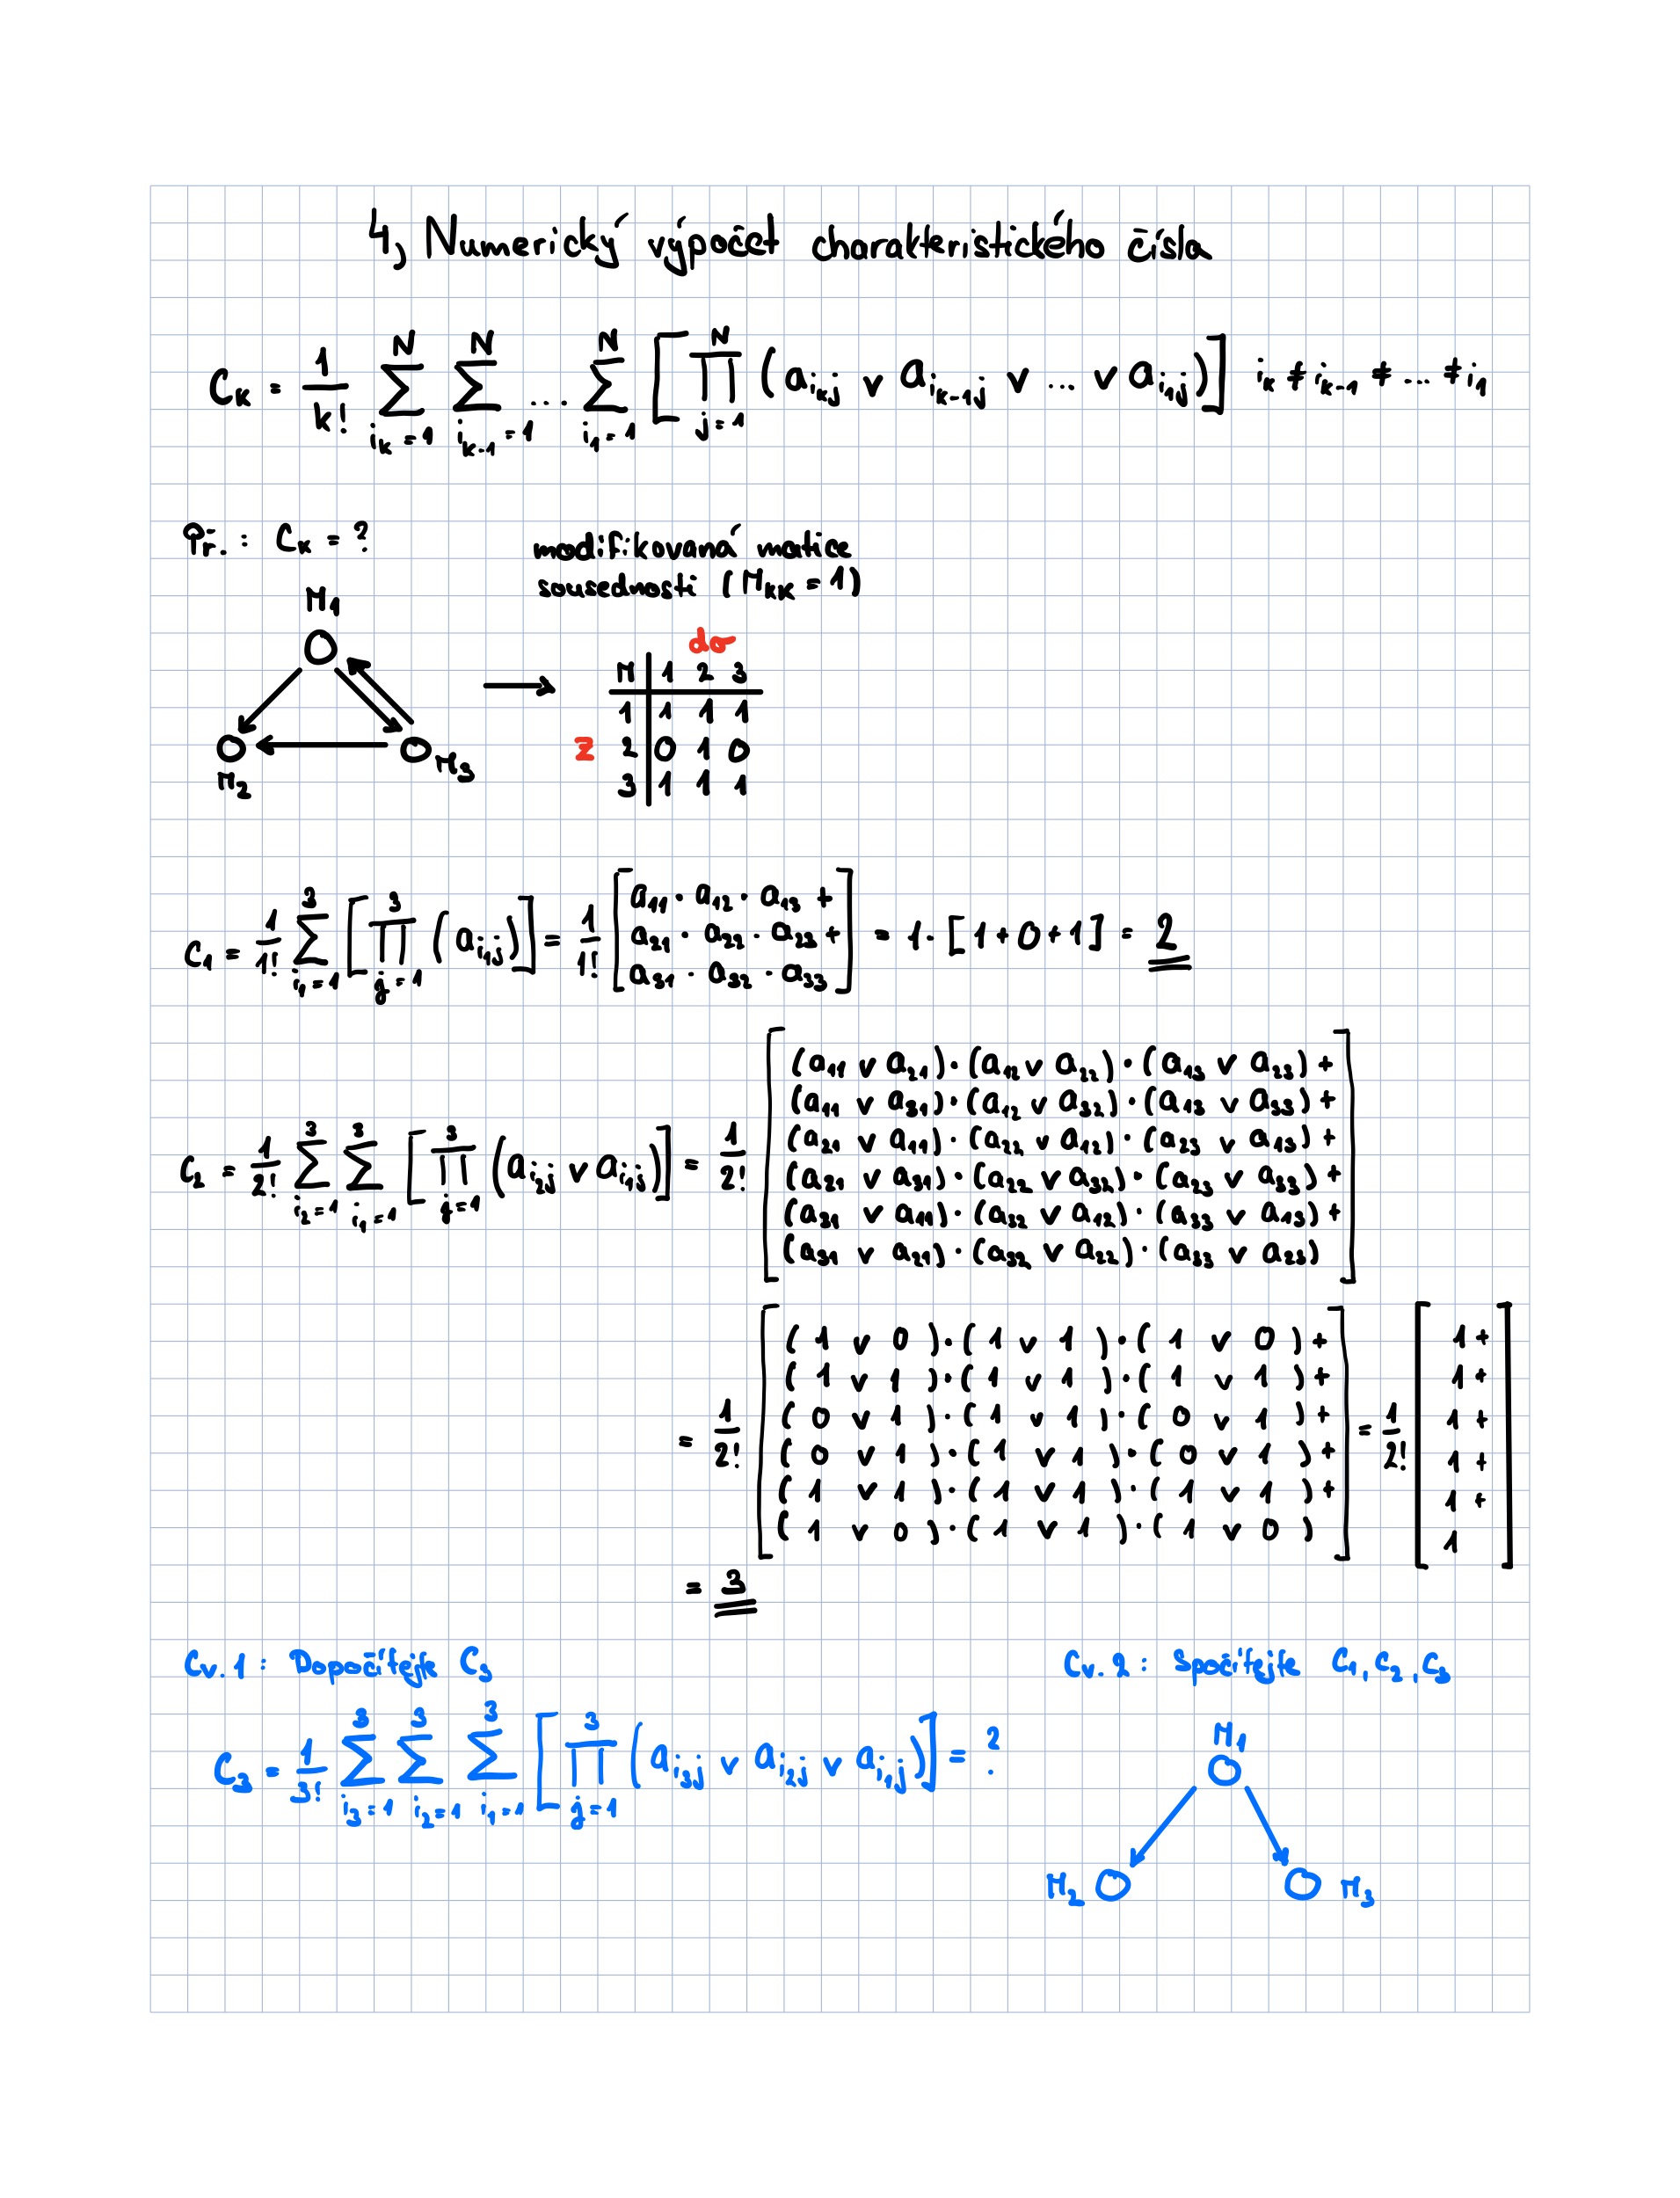 4, Numerický výpočet charakteristického čísla
C_K = 1/k! ∑_{i_k=1}^{N} ∑_{i_{k-1}=1}^{N} ... ∑_{i_1=1}^{N} [ ∏_{j=1}^{N} ( a_{i_k j} ∨ a_{i_{k-1} j} ∨ ... ∨ a_{i_1 j} ) ] i_k ≠ i_{k-1} ≠ ... ≠ i_1
Př.: C_K = ?
modifikovaná matice
sousednosti ( M_KK = 1 )
M_1
M_2
M_3
do
z
M | 1 2 3
1 | 1 1 1
2 | 0 1 0
3 | 1 1 1
C_1 = 1/1! ∑_{i_1=1}^{3} [ ∏_{j=1}^{3} ( a_{i_1 j} ) ] = 1/1! [ a_11 · a_12 · a_13 +
a_21 · a_22 · a_23 +
a_31 · a_32 · a_33 ] = 1 · [ 1 + 0 + 1 ] = 2
C_2 = 1/2! ∑_{i_2=1}^{3} ∑_{i_1=1}^{3} [ ∏_{j=1}^{3} ( a_{i_2 j} ∨ a_{i_1 j} ) ] = 1/2! [ (a_11 ∨ a_21) · (a_12 ∨ a_22) · (a_13 ∨ a_23) +
(a_11 ∨ a_31) · (a_12 ∨ a_32) · (a_13 ∨ a_33) +
(a_21 ∨ a_11) · (a_22 ∨ a_12) · (a_23 ∨ a_13) +
(a_21 ∨ a_31) · (a_22 ∨ a_32) · (a_23 ∨ a_33) +
(a_31 ∨ a_11) · (a_32 ∨ a_12) · (a_33 ∨ a_13) +
(a_31 ∨ a_21) · (a_32 ∨ a_22) · (a_33 ∨ a_23) ]
= 1/2! [ ( 1 ∨ 0 ) · ( 1 ∨ 1 ) · ( 1 ∨ 0 ) +
( 1 ∨ 1 ) · ( 1 ∨ 1 ) · ( 1 ∨ 1 ) +
( 0 ∨ 1 ) · ( 1 ∨ 1 ) · ( 0 ∨ 1 ) +
( 0 ∨ 1 ) · ( 1 ∨ 1 ) · ( 0 ∨ 1 ) +
( 1 ∨ 1 ) · ( 1 ∨ 1 ) · ( 1 ∨ 1 ) +
( 1 ∨ 0 ) · ( 1 ∨ 1 ) · ( 1 ∨ 0 ) ] = 1/2! [ 1 +
1 +
1 +
1 +
1 +
1 ]
= 3
Cv.1 : Dopočítejte C_3
C_3 = 1/3! ∑_{i_3=1}^{3} ∑_{i_2=1}^{3} ∑_{i_1=1}^{3} [ ∏_{j=1}^{3} ( a_{i_3 j} ∨ a_{i_2 j} ∨ a_{i_1 j} ) ] = ?
Cv.2 : Spočítejte C_1, C_2, C_3
M_1
M_2
M_3